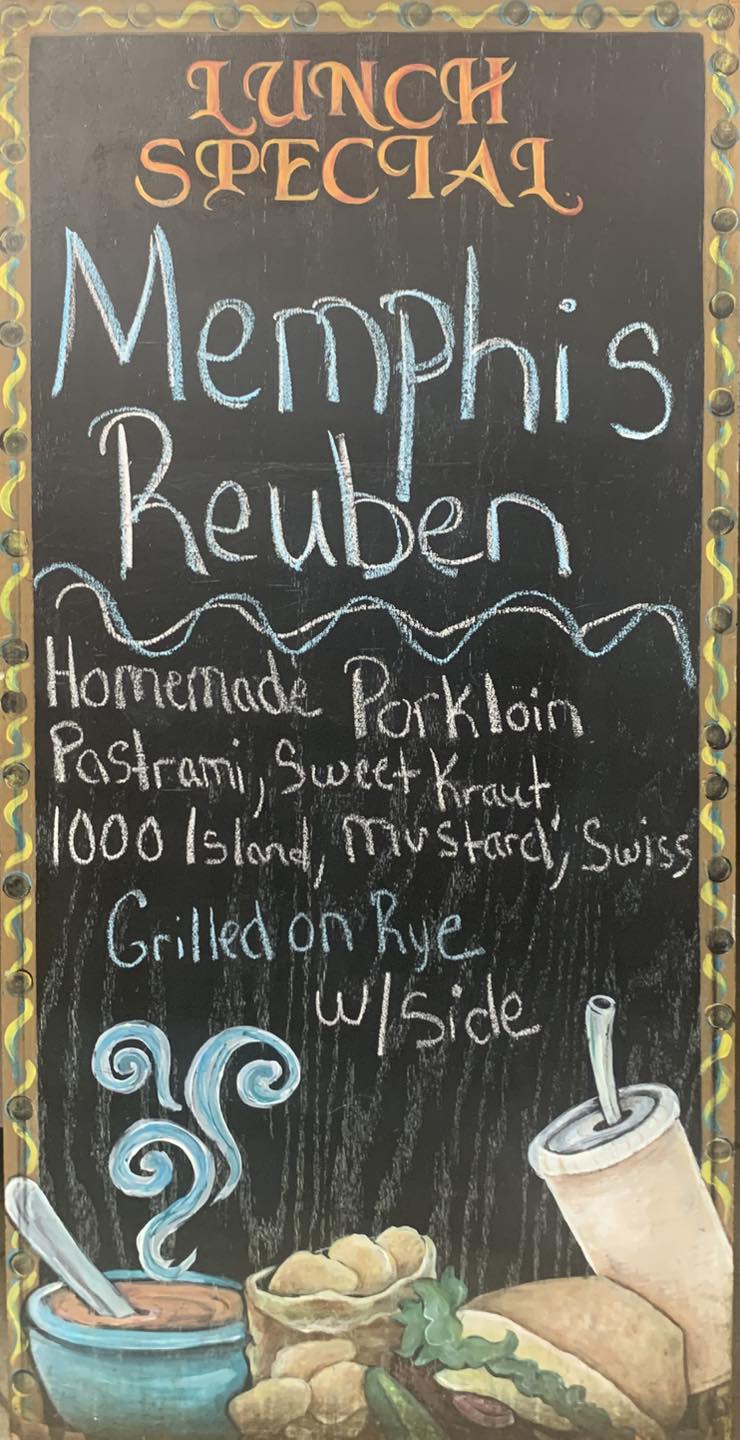 LUNCH
SPECIAL
Memphis
Reuben
Homemade Porkloin
Pastrami, Sweet Kraut
1000 Island, Mustard, Swiss
Grilled on Rye
w/Side